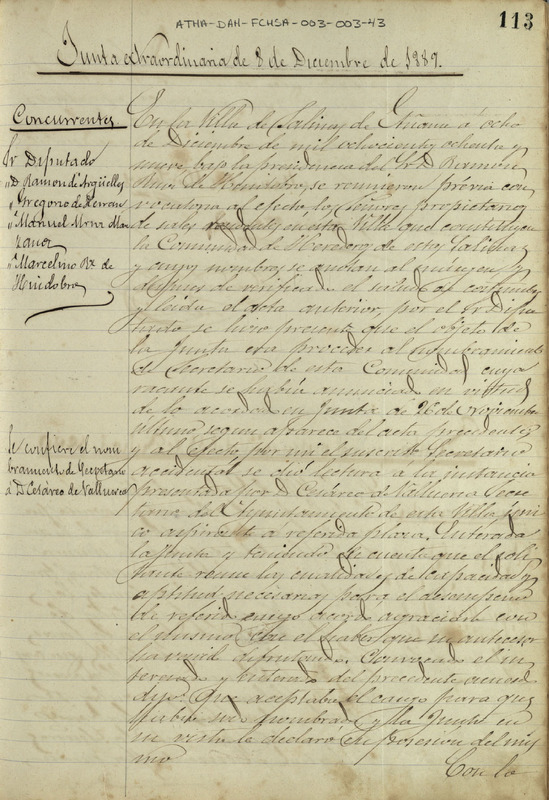 ATHA-DAH-FCHSA-003-003-43
113
Junta extraordinaria de 8 de Diciembre de 1889.
Concurrentes
Sr Diputado
" D. Ramon de Argüelles
" Gregorio de
" Manuel Mria Man
zanos
" Marcelino Rz. de
Huidobro
Se confiere el nom
bramiento de Secretario
á D. Cesáreo de Valluerca
En la Villa de Salinas de Añana á ocho
de Diciembre de mil ochocientos ochenta y
nueve, bajo la presidencia del Sr D. Ramon
de Huidobro, se reunieron prévia con
vocatoria al efecto, los Señores propietarios
de sales residentes en esta Villa que constituyen
la Comunidad de Herederos de estas Salinas
y cuyos nombres se anotan al márgen y
despues de verificado el saludo de costumbre
y leida el acta anterior, por el Sr Dipu
tado se hizo presente que el objeto de
la Junta era proceder al nombramiento
de Secretario de esta Comunidad cuya
vacante se habia anunciado en virtud
de lo acordado en Junta de 26 de Noviembre
último segun aparece del acta precedente;
y al efecto por mi el suscrito Secretario
accidental se dió lectura á la instancia
presentada por D. Cesáreo de Valluerca Secre
tario del Ayuntamiento de esta Villa úni
co aspirante á referida plaza. Enterada
la Junta y teniendo en cuenta que el soli
citante reune las cualidades de capacidad y
aptitud necesarias para el desempeño
de referido cargo acordó agraciarle con
el mismo el haber que su antecesor
ha venido disfrutando. Convocado el in
teresado y enterado del precedente acuerdo
dijo: Que aceptaba el cargo para que
habia sido nombrado y la Junta en
su vista le declaró en posesion del mis
mo
Con lo